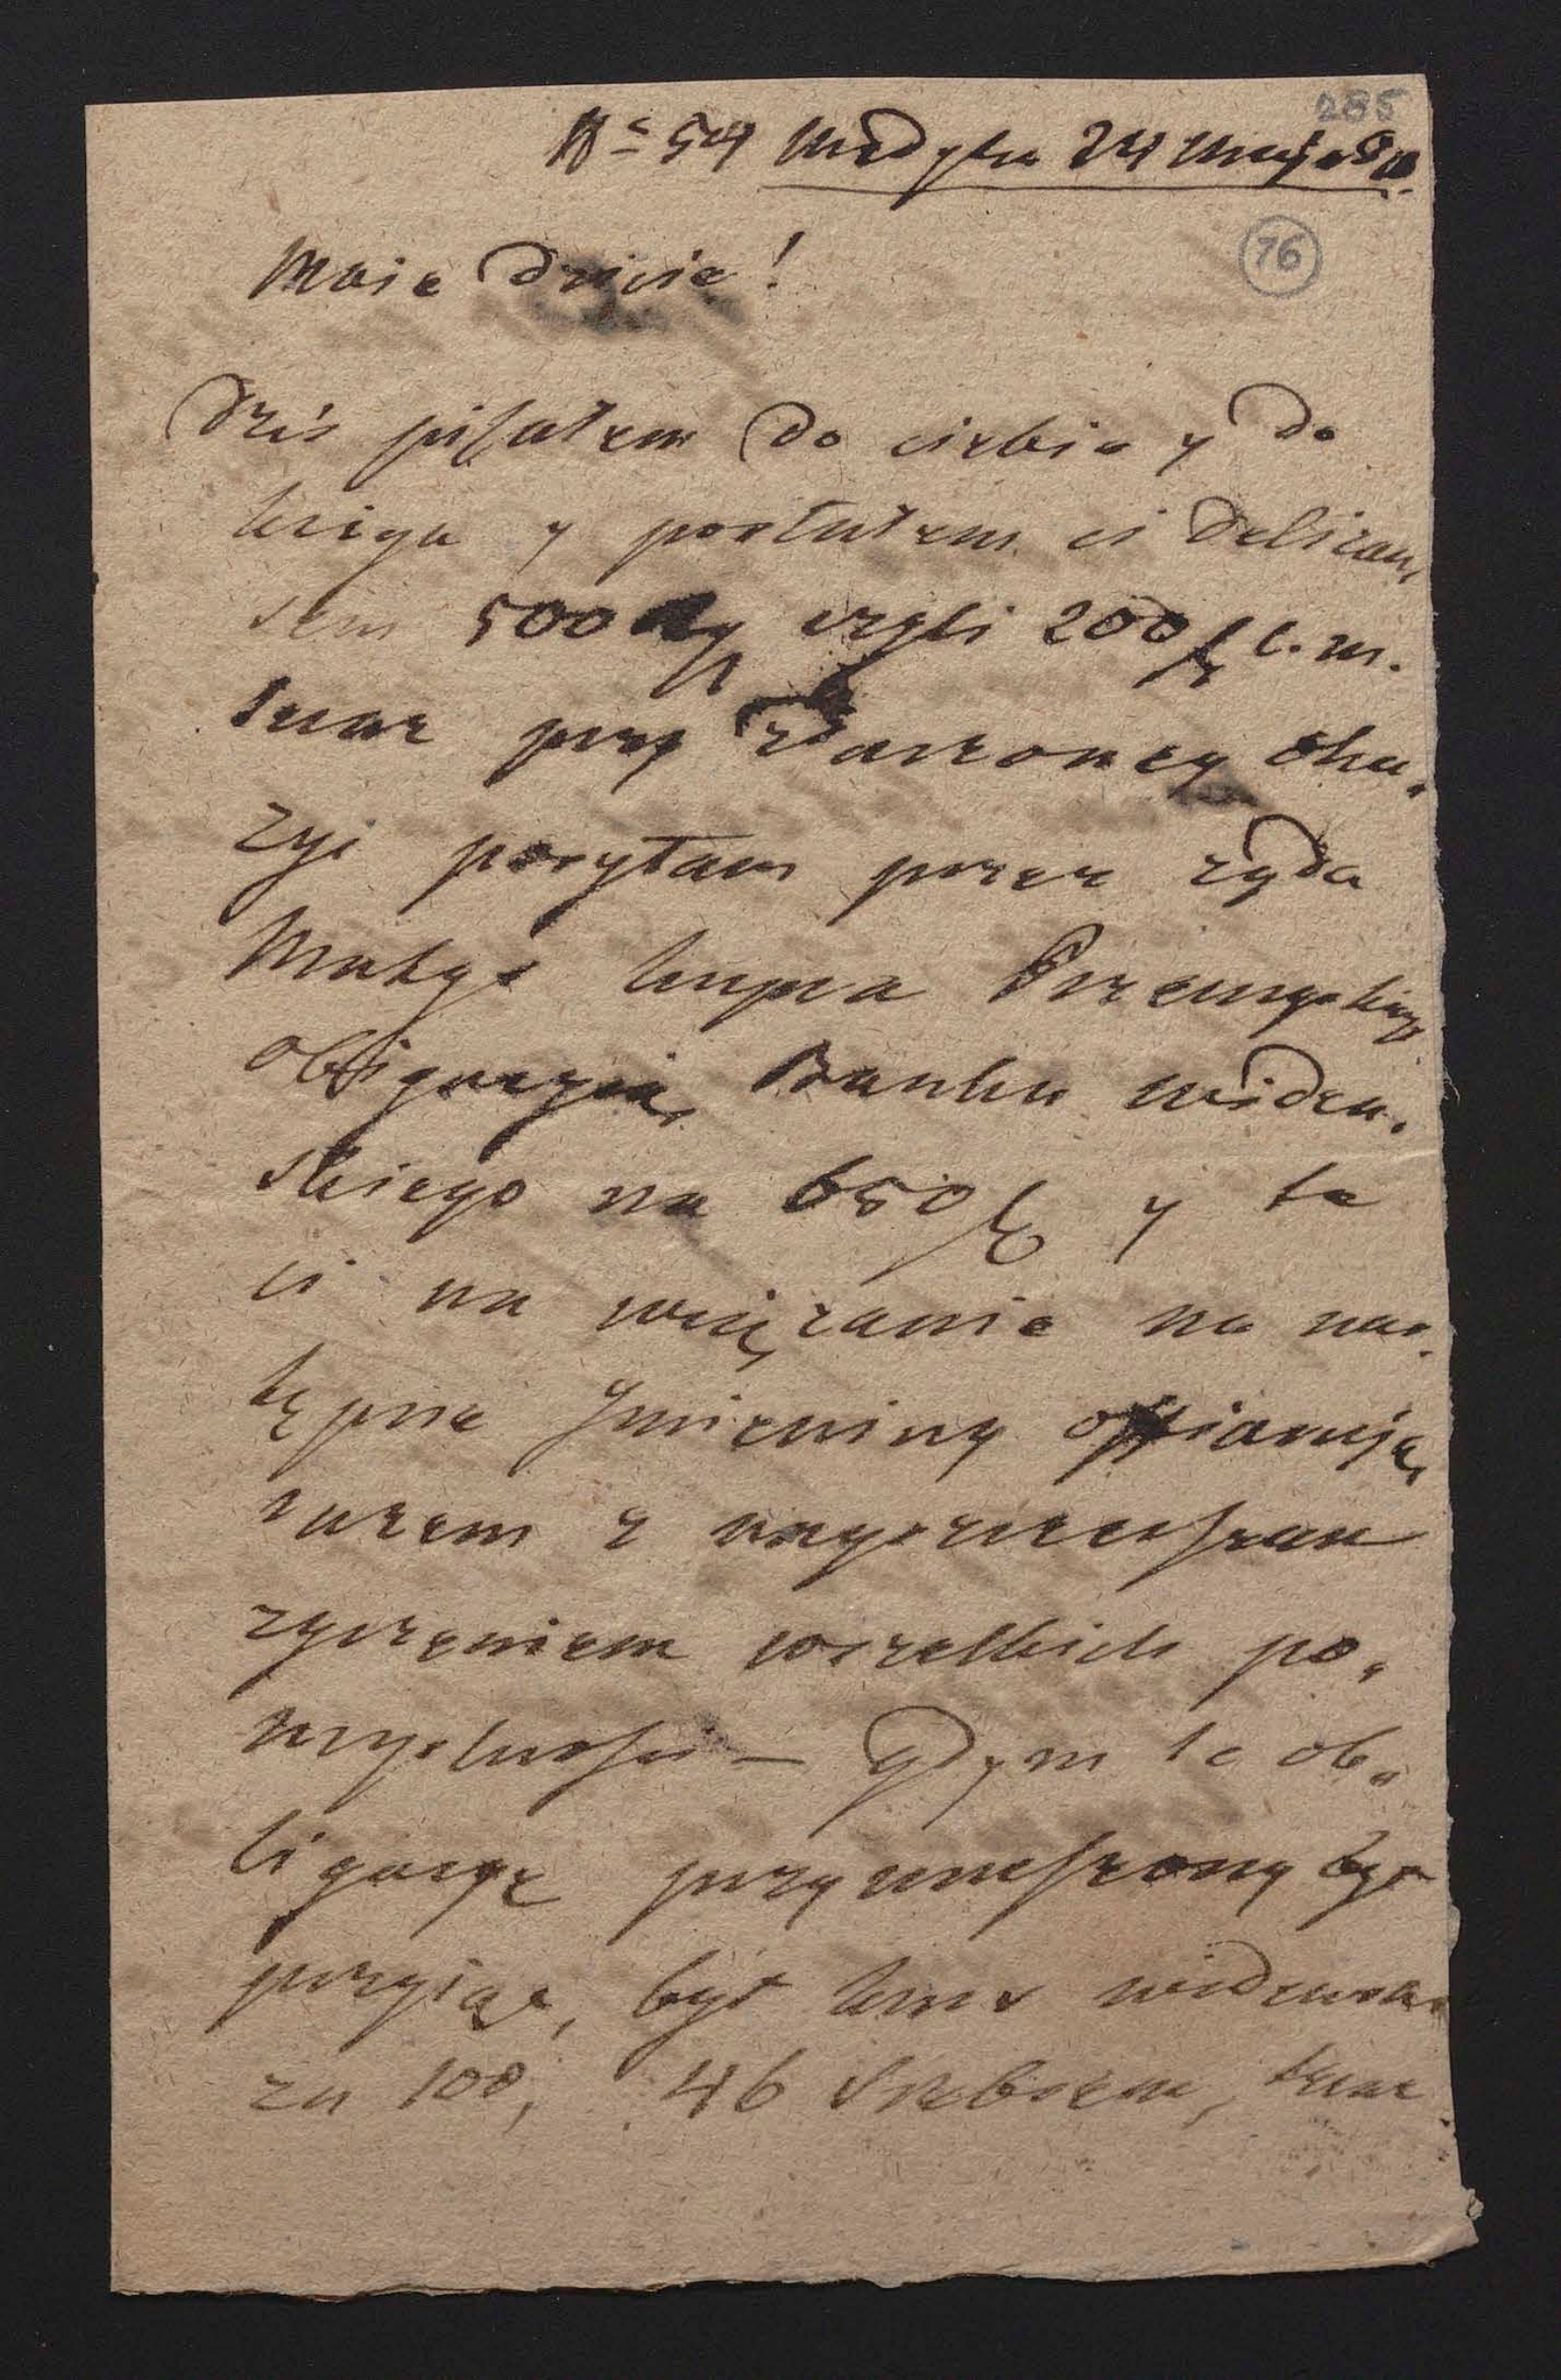 285
N 54 Medyka 24 Maja
76
Moie Dziecie!
Dziś pisałem do ciebie y do
y posłałem ci Deliżan,
sem 500 czyli 200 f C. m.
Teraz przy zdarzoney oka,
zyi posyłam przez żyda
kupca Przemyskiego
obligacyią, Banku wideń,
skiego na 650 f y te
ci na wiązanie na nas,
tępne Jmieniny offiaruję,
razem z nayszczerszem
życzeniem wszelkich po,
myslnosci — gdym te ob,
ligacyę przymuszony był
przyiąć, był kurs widenski
za 100, 46 Srebrem, teraz